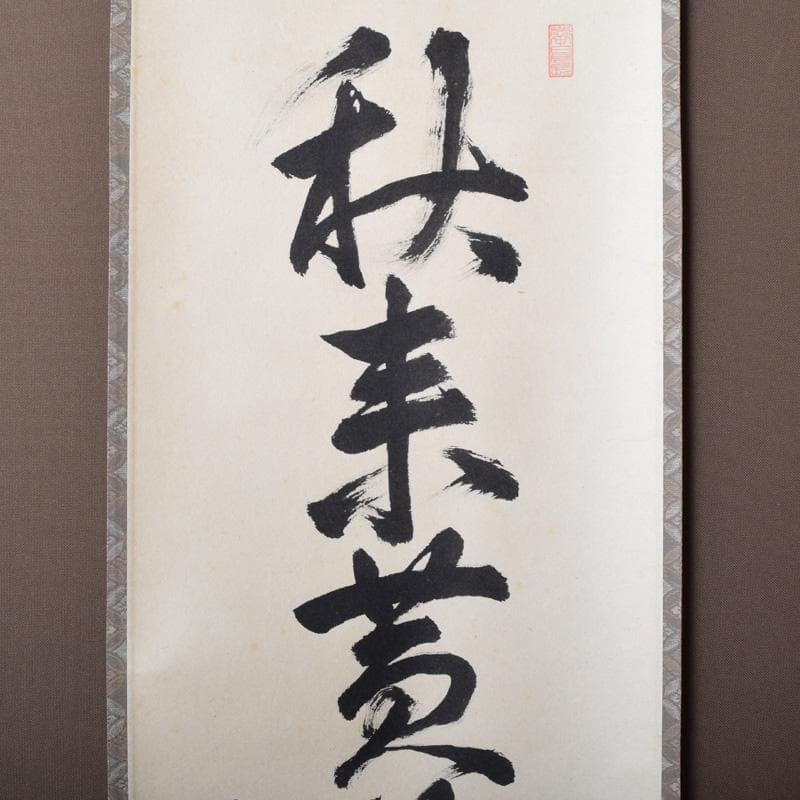 秋来黄